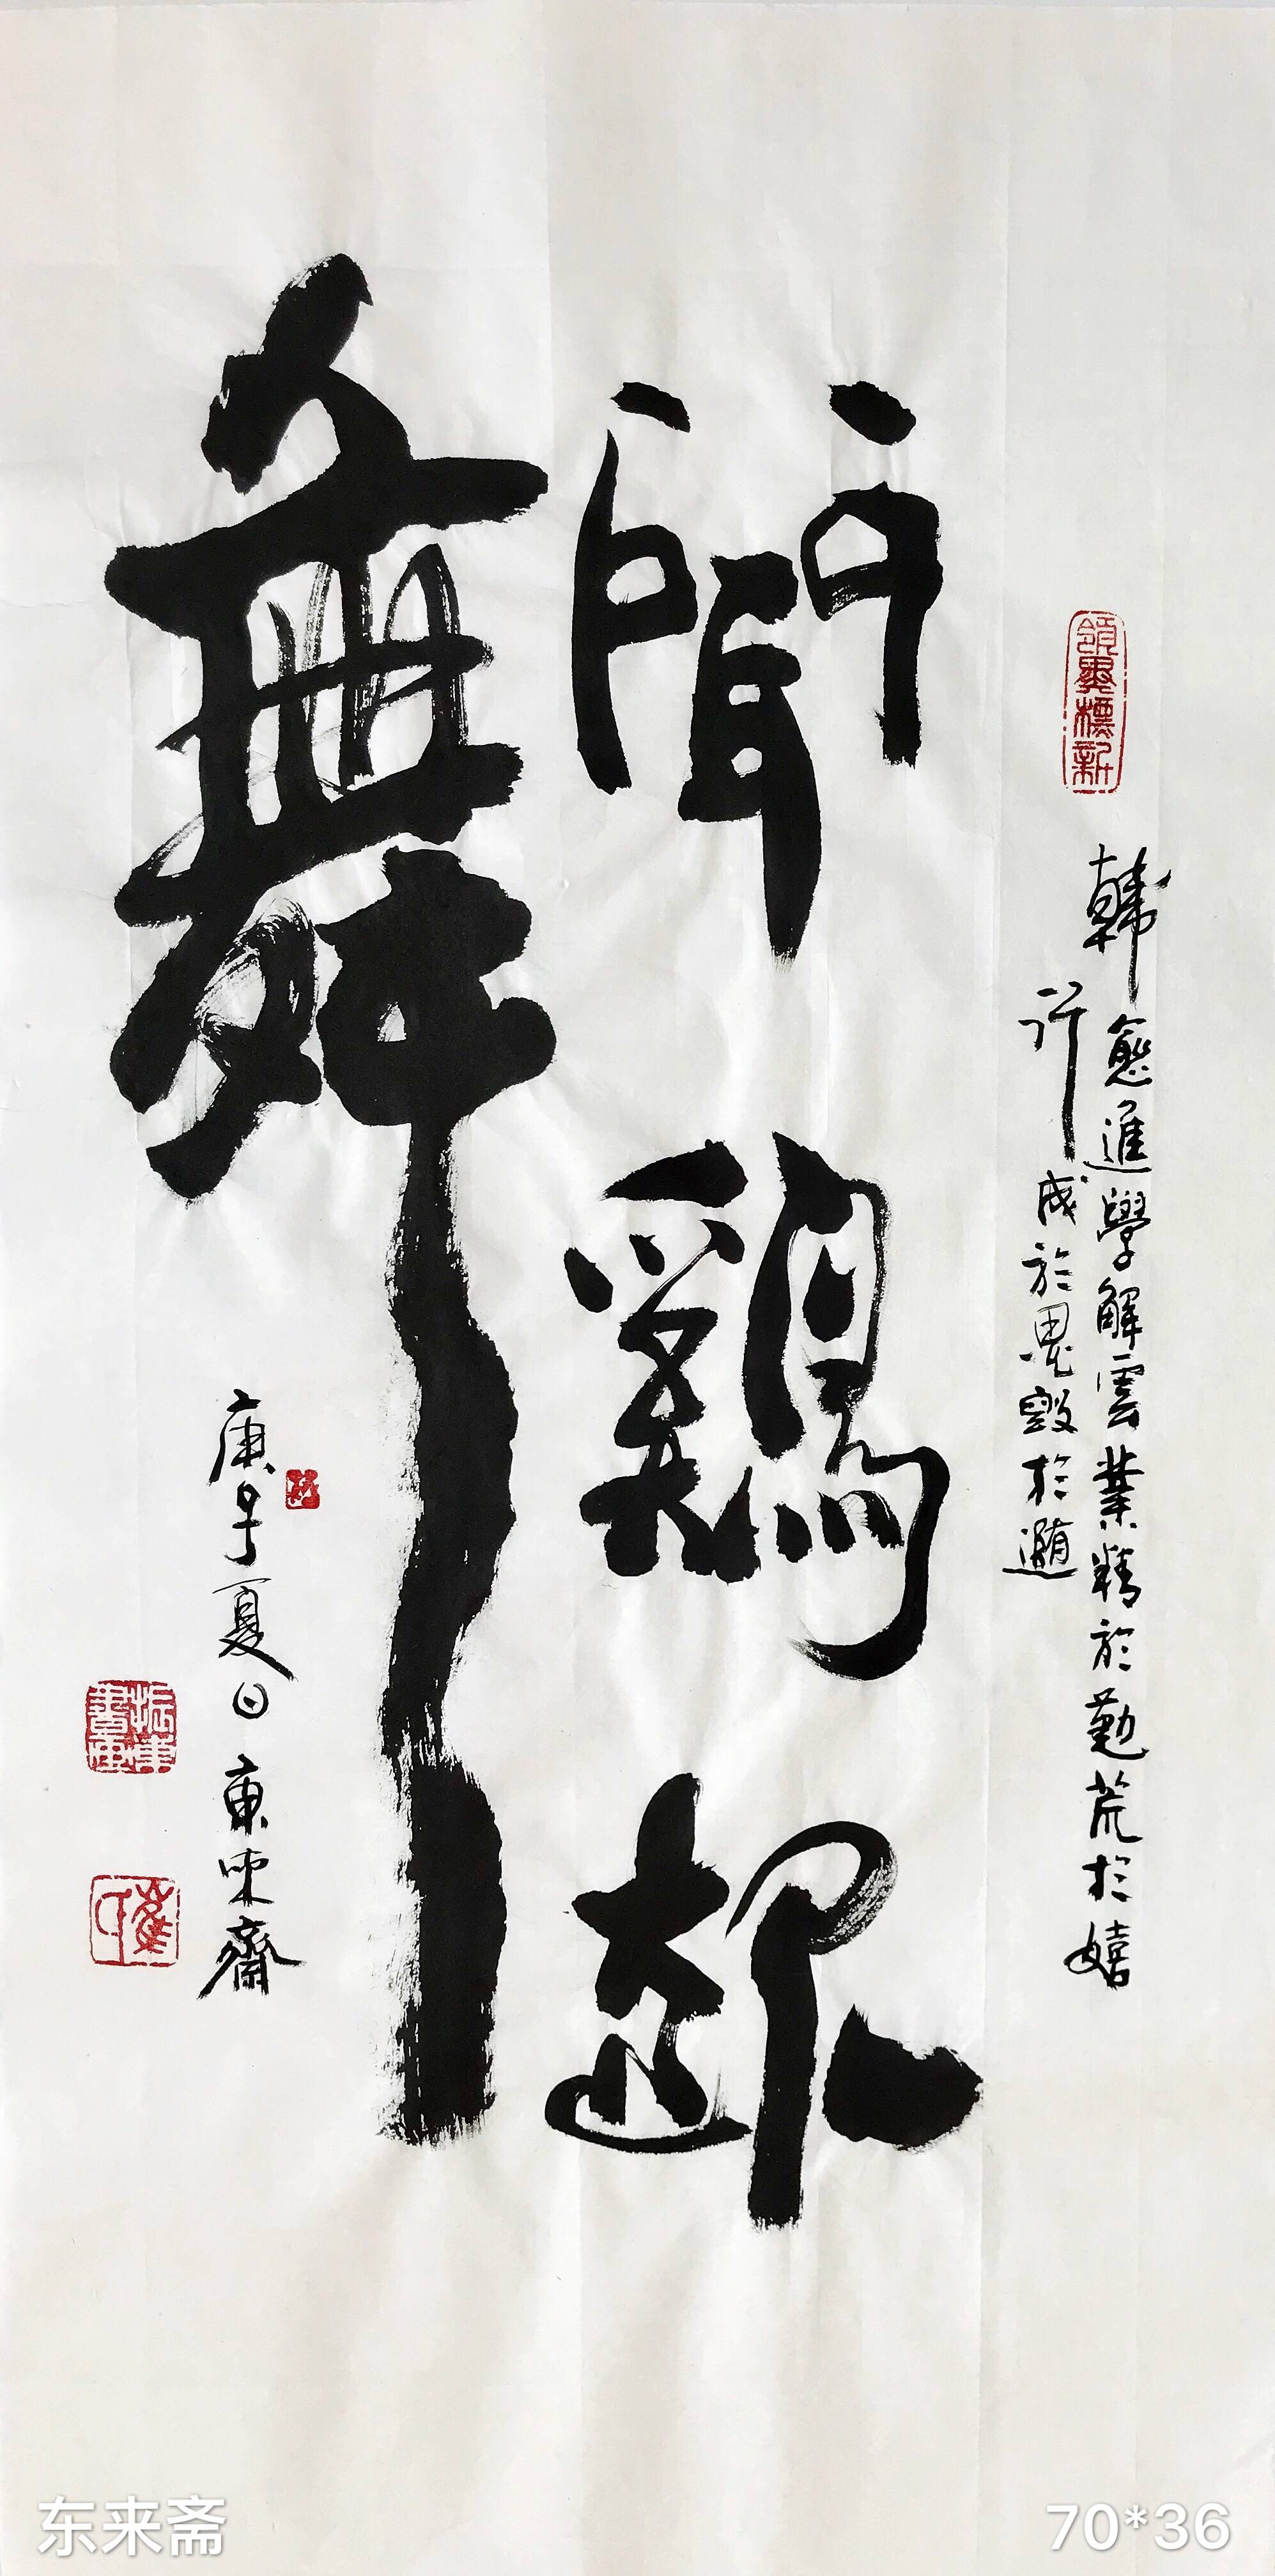 領異標新
韓愈進學解雲業精於勤荒於嬉
行成於思毀於隨
聞鷄起
舞
庚子夏日東來齋
东来斋
70*36